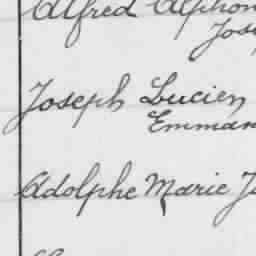 Alfred Alphon
Jos
Joseph Lucien
Emman
Adolphe Marie J